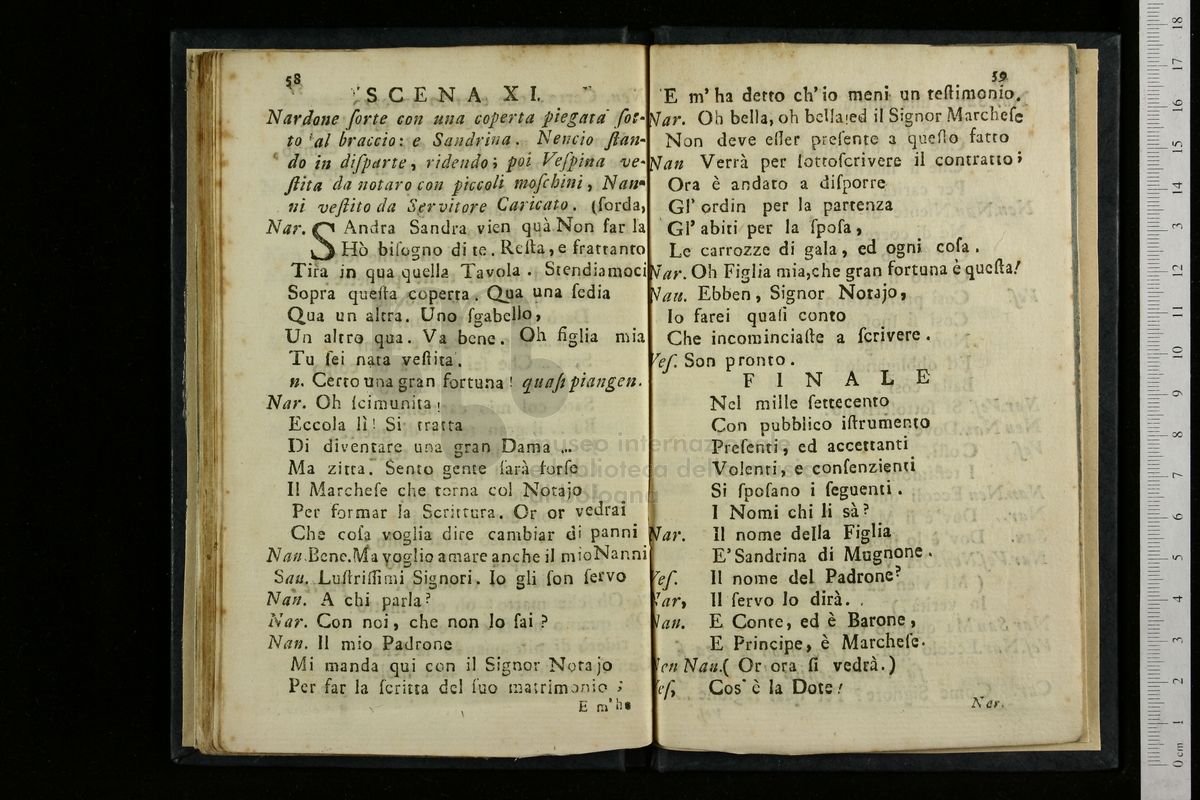 58
SCENA XI.
Nardone ſorte con una coperta piegata ſot-
to al braccio: e Sandrina. Nencio ſtan-
do in diſparte, ridendo; poi Veſpina ve-
ſtita da notaro con piccoli moſchini, Nan-
ni veſtito da Servitore Caricato. (ſorda,
Nar. SAndra Sandra vien quà Non far la
Hò biſogno di te. Reſta, e frattanto
Tira in qua quella Tavola. Stendiamoci
Sopra queſta coperta. Qua una ſedia
Qua un altra. Uno ſgabello,
Un altro qua. Va bene. Oh figlia mia
Tu ſei nata veſtita.
n. Certo una gran fortuna! quaſi piangen.
Nar. Oh ſcimunita!
Eccola lì! Si tratta
Di diventare una gran Dama ...
Ma zitta. Sento gente ſarà forſe
Il Marcheſe che torna col Notajo
Per formar la Scrittura. Or or vedrai
Che coſa voglia dire cambiar di panni
Nan. Bene. Ma voglio amare anche il mio Nanni
Sau. Luſtriſſimi Signori. Io gli ſon ſervo
Nan. A chi parla?
Nar. Con noi, che non lo ſai?
Nan. Il mio Padrone
Mi manda qui con il Signor Notajo
Per far la ſcritta del ſuo matrimonio;
E m'ha
59
E m'ha detto ch'io meni un teſtimonio.
Nar. Oh bella, oh bella! ed il Signor Marcheſe
Non deve eſſer preſente a queſto fatto
Nan Verrà per ſottoſcrivere il contratto;
Ora è andato a diſporre
Gl' ordin per la partenza
Gl' abiti per la ſpoſa,
Le carrozze di gala, ed ogni coſa.
Nar. Oh Figlia mia, che gran fortuna è queſta!
Nau. Ebben, Signor Notajo,
Io farei quaſi conto
Che incominciaſte a ſcrivere.
Veſ. Son pronto.
FINALE
Nel mille ſettecento
Con pubblico iſtrumento
Preſenti, ed accettanti
Volenti, e conſenzienti
Si ſpoſano i ſeguenti.
I Nomi chi li sà?
Nar. Il nome della Figlia
E' Sandrina di Mugnone.
Veſ. Il nome del Padrone?
Nar, Il ſervo lo dirà.
Nan. E Conte, ed è Barone,
E Principe, è Marcheſe.
Nen Nau. (Or ora ſi vedrà.)
Veſ, Cos' è la Dote!
Nar.
museo internazionale
e biblioteca della musica
di bologna
18
17
16
15
14
13
12
11
10
9
8
7
6
5
4
3
2
1
0 cm